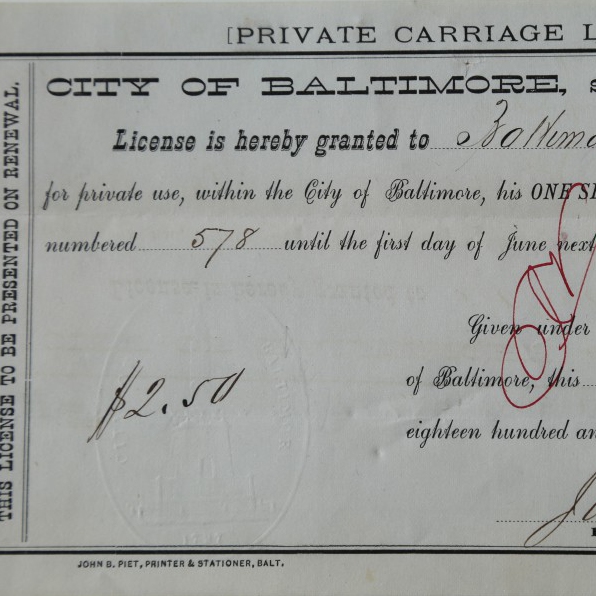 [PRIVATE CARRIAGE L
CITY OF BALTIMORE,
License is hereby granted to
for private use, within the City of Baltimore, his ONE S
numbered 578 until the first day of June next
Given under
of Baltimore, this
$2.50
eighteen hundred an
THIS LICENSE TO BE PRESENTED ON RENEWAL.
JOHN B. PIET, PRINTER & STATIONER, BALT.